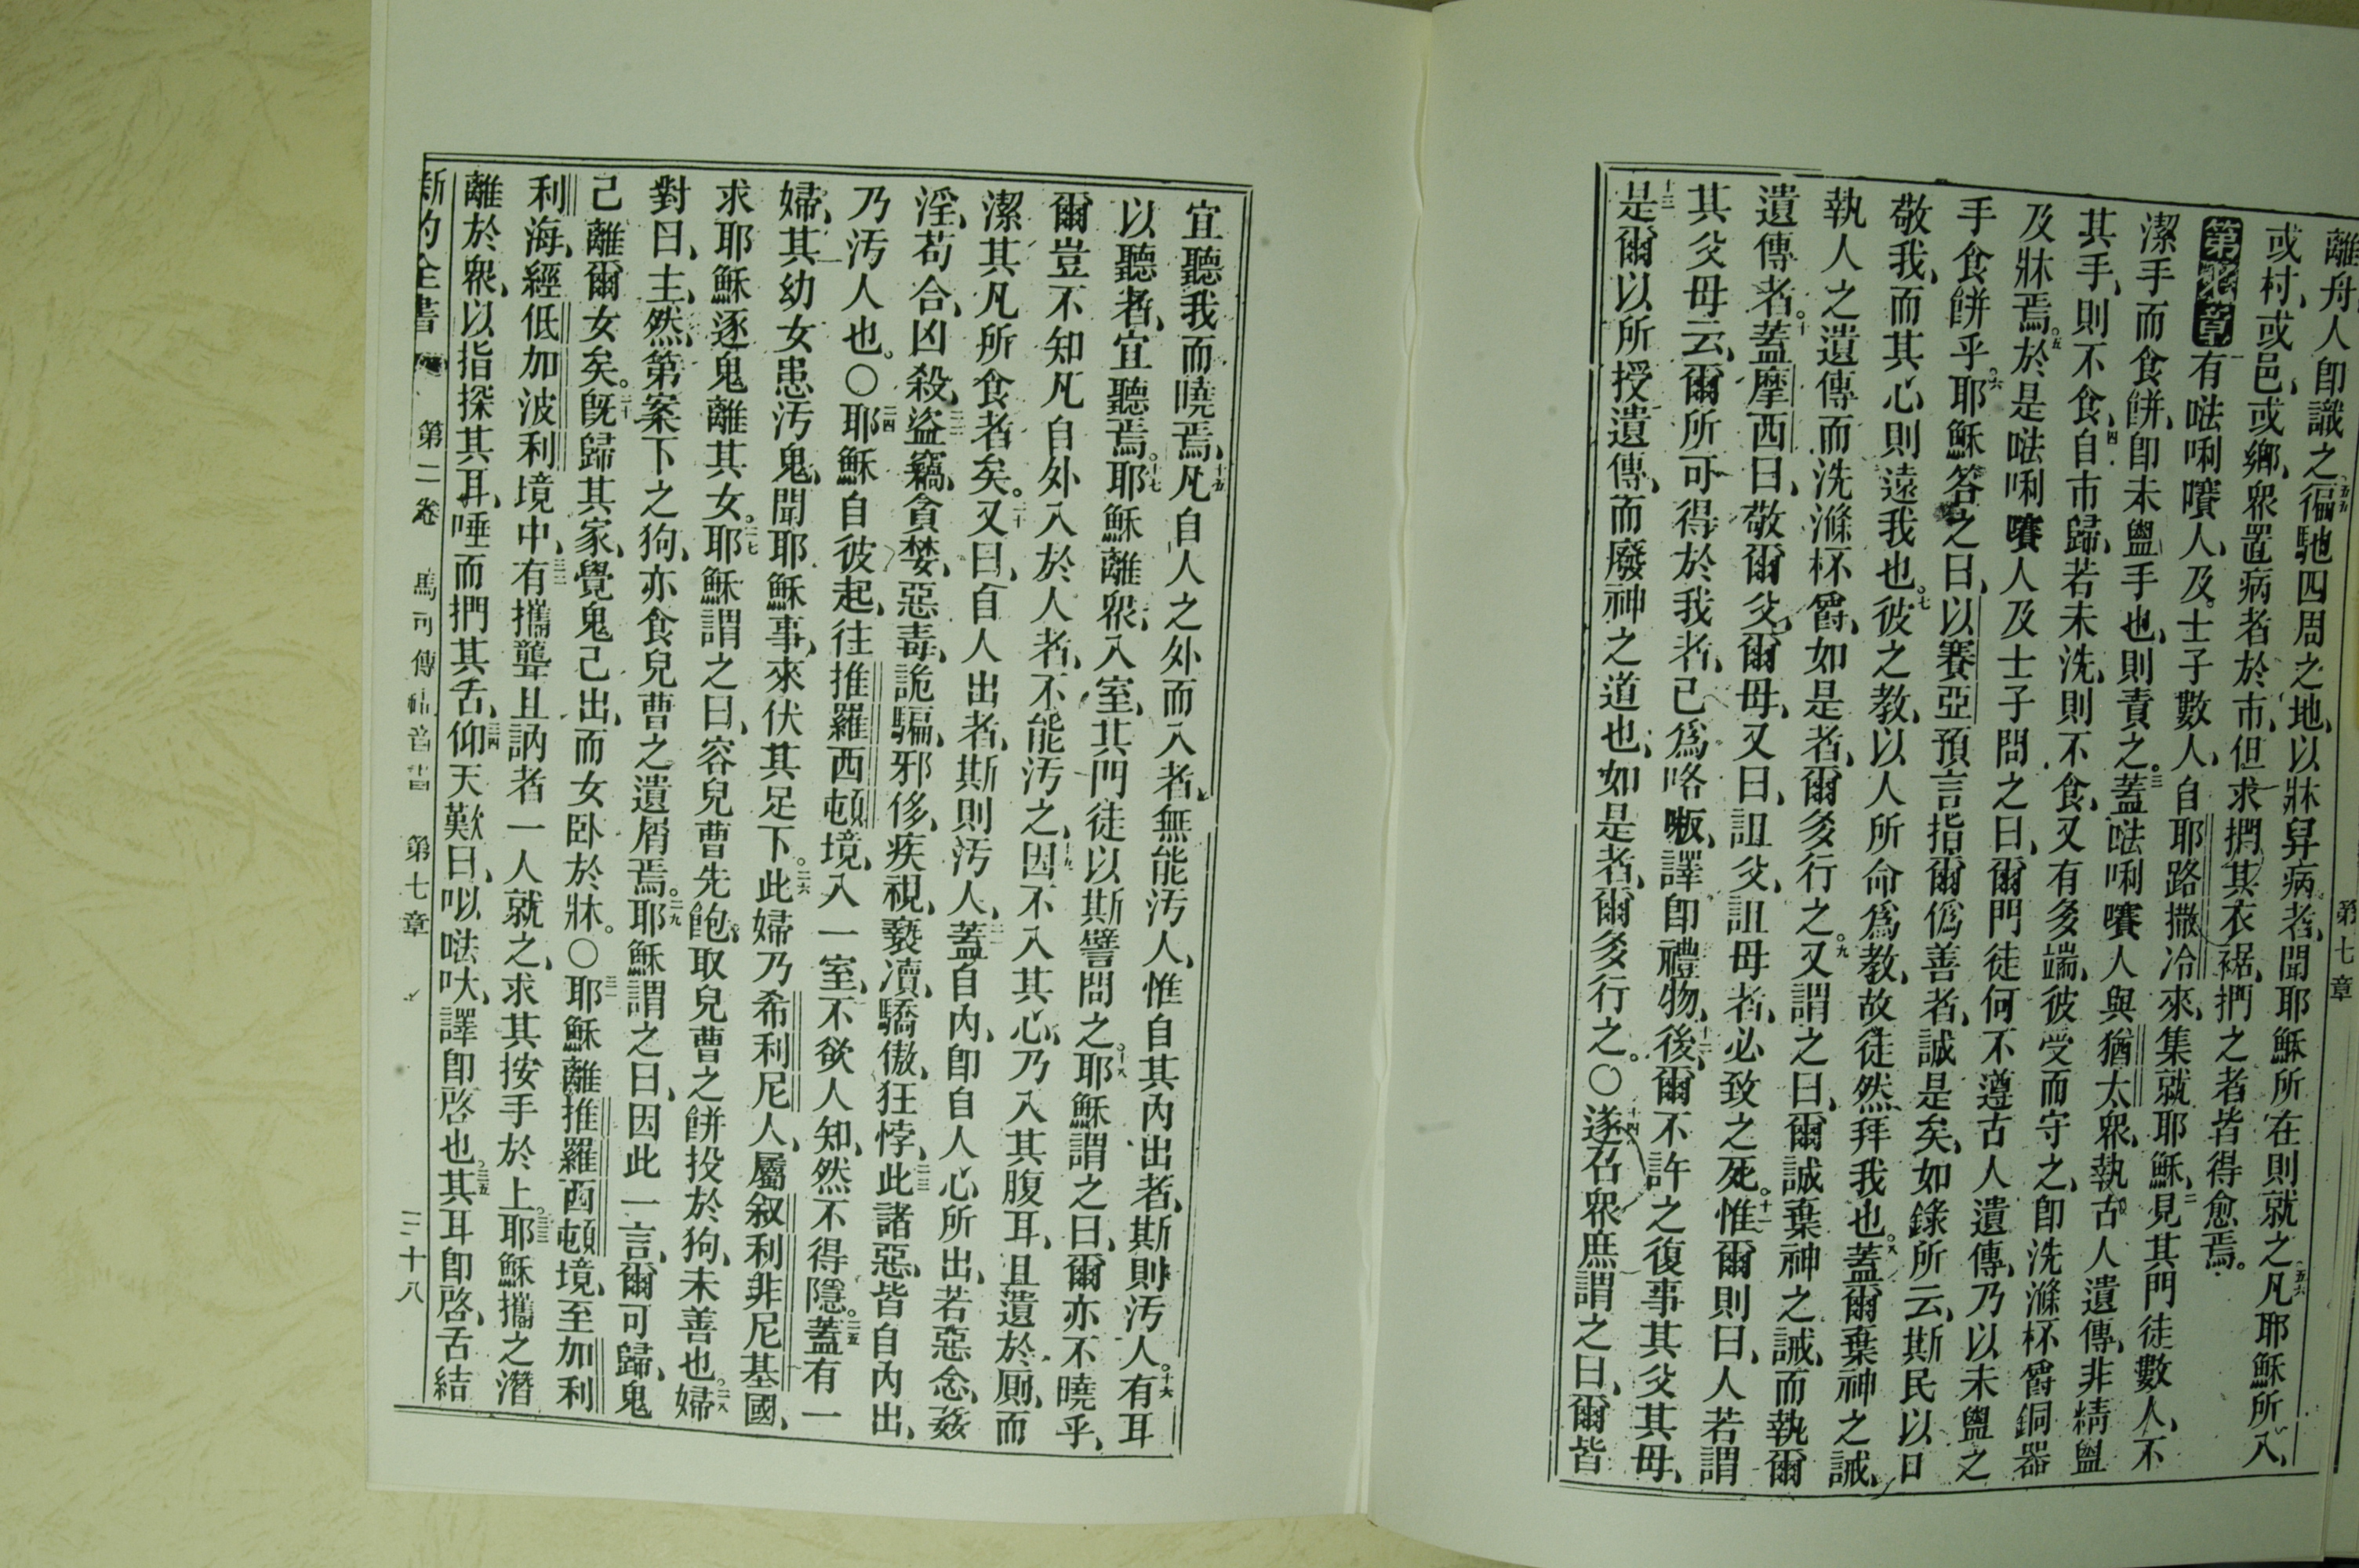 第七章
離舟人卽識之五五徧馳四周之地以牀舁病者聞耶穌所在則就之五六凡耶穌所入、
或村、或邑、或鄉、衆置病者於市、但求捫其衣裾、捫之者皆得愈焉。
第七章一有𠵽唎嚽人、及士子數人、自耶路撒冷來、集就耶穌、二見其門徒數人、不
潔手而食餅、卽未盥手也、則責之。三蓋𠵽唎嚽人與猶太衆、執古人遺傳、非精盥
其手、則不食、四自市歸、若未洗、則不食、又有多端、彼受而守之、卽洗滌杯爵銅器
及牀焉。五於是𠵽唎嚽人及士子問之曰、爾門徒何不遵古人遺傳、乃以未盥之
手食餅乎。六耶穌答之曰、以賽亞預言指爾僞善者、誠是矣、如錄所云、斯民以口
敬我、而其心則遠我也。七彼之教、以人所命爲教、故徒然拜我也。八蓋爾棄神之誡、
執人之遺傳、而洗滌杯爵、如是者、爾多行之。九又謂之曰、爾誠棄神之誡、而執爾
遺傳者。十蓋摩西曰、敬爾父、爾母、又曰、詛父、詛母者、必致之死。十一惟爾則曰、人若謂
其父母云、爾所可得於我者、已爲咯㗑、譯卽禮物、十二後、爾不許之復事其父其母、
十三是爾以所授遺傳、而廢神之道也、如是者、爾多行之。〇十四遂召衆庶謂之曰、爾皆
宜聽我而曉焉、十五凡自人之外而入者、無能汚人、惟自其內出者、斯則汚人。十六有耳
以聽者、宜聽焉。十七耶穌離衆、入室、其門徒以斯譬問之。十八耶穌謂之曰、爾亦不曉乎、
爾豈不知凡自外入於人者、不能汚之、十九因不入其心、乃入其腹耳、且遺於厠、而
潔其凡所食者矣。二十又曰、自人出者、斯則汚人、二一蓋自內、卽自人心所出、若惡念、姦
淫、苟合、凶殺、二二盜竊、貪婪、惡毒、詭騙、邪侈、疾視、褻瀆、驕傲、狂悖、二三此諸惡、皆自內出、
乃汚人也。〇二四耶穌自彼起、往推羅西頓境、入一室、不欲人知、然不得隱。二五蓋有一
婦、其幼女患汚鬼、聞耶穌事、來伏其足下。二六此婦乃希利尼人、屬叙利非尼基國、
求耶穌逐鬼離其女。二七耶穌謂之曰、容兒曹先飽、取兒曹之餅投於狗、未善也。二八婦
對曰、主、然、第案下之狗、亦食兒曹之遺屑焉。二九耶穌謂之曰、因此一言、爾可歸、鬼
已離爾女矣。三十旣歸其家、覺鬼已出、而女卧於牀。〇三一耶穌離推羅西頓境、至加利
利海、經低加波利境中、三二有攜聾且訥者一人就之、求其按手於上。三三耶穌攜之潛
離於衆、以指探其耳、唾而捫其舌、三四仰天歎曰、㕥𠵽吠、譯卽啓也。三五其耳卽啓、舌結
新約全書 第二卷 馬可傳福音書 第七章 二十八